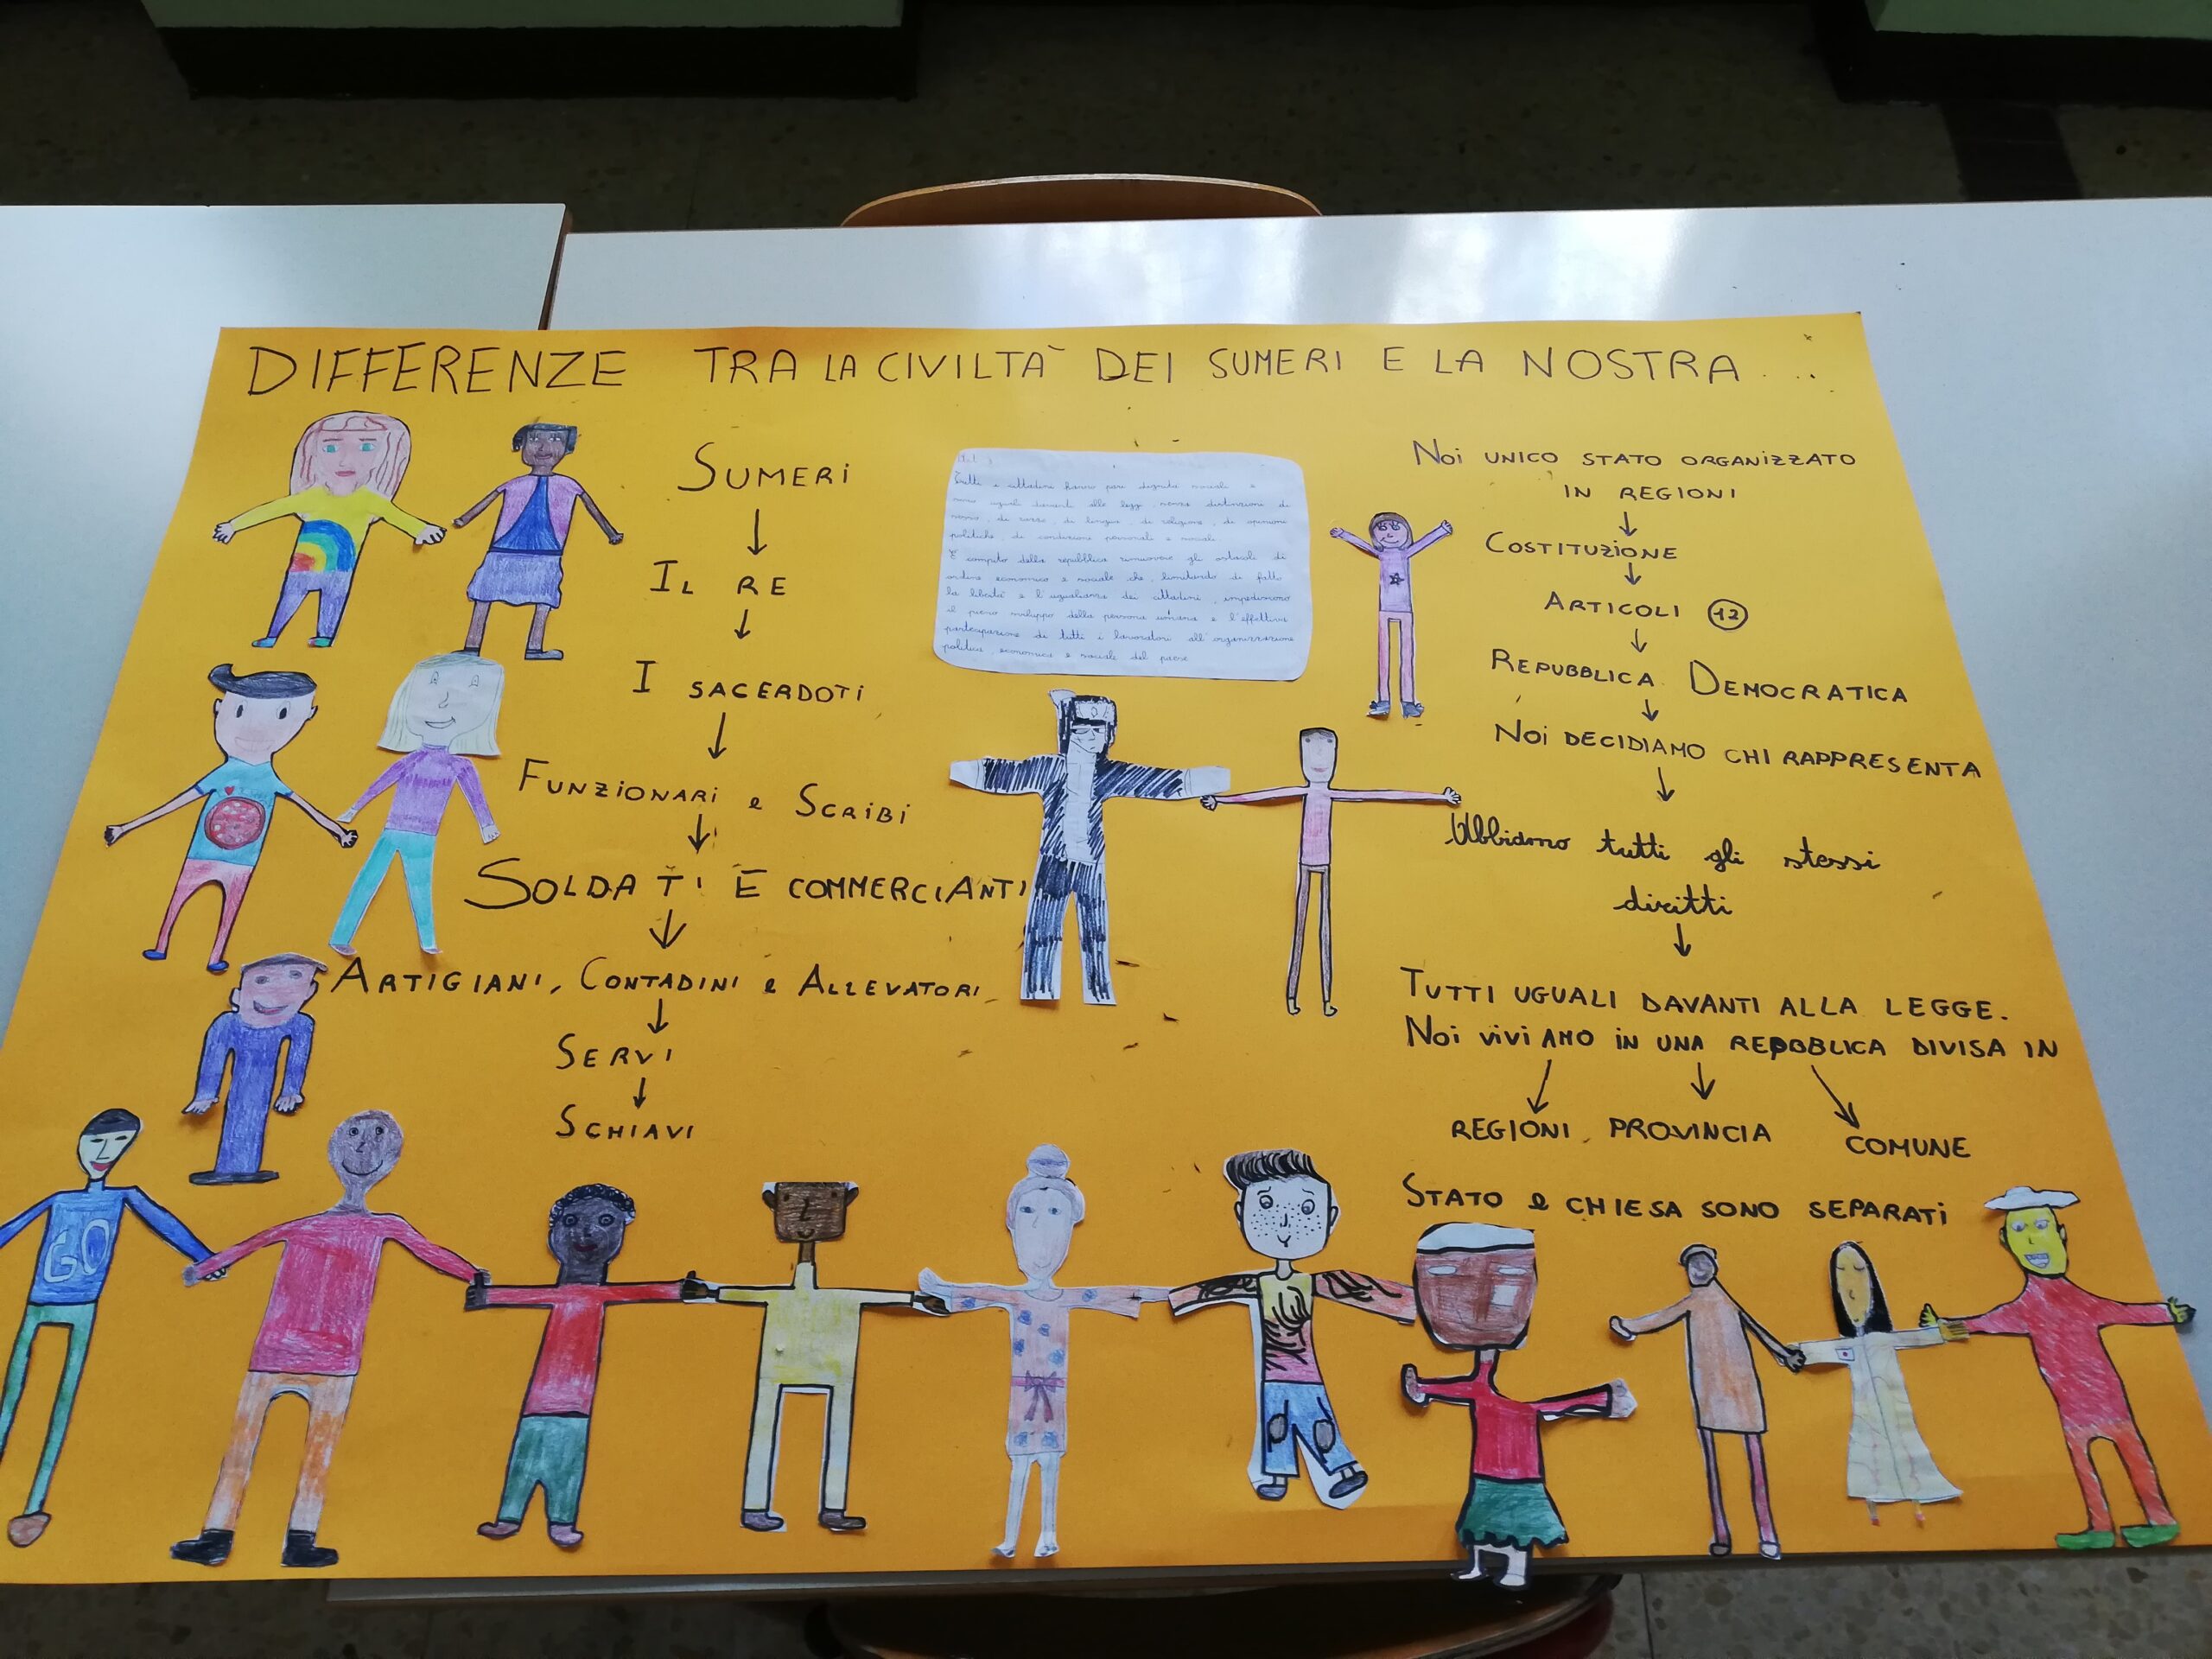 DIFFERENZE TRA LA CIVILTÀ DEI SUMERI E LA NOSTRA...
SUMERI
IL RE
I SACERDOTI
FUNZIONARI e SCRIBI
SOLDATI E COMMERCIANTI
ARTIGIANI, CONTADINI e ALLEVATORI
SERVI
SCHIAVI
Tutti i cittadini hanno pari dignità sociale e
sono uguali davanti alle leggi senza distinzioni di
sesso, di razza, di lingua, di religione, di opinioni
politiche, di condizioni personali e sociali
È compito della repubblica rimuovere gli ostacoli di
ordine economico e sociale che, limitando di fatto
la libertà e l'uguaglianza dei cittadini, impediscono
il pieno sviluppo della persona umana e l'effettiva
partecipazione di tutti i lavoratori all'organizzazione
politica, economica e sociale del paese
NOI UNICO STATO ORGANIZZATO
IN REGIONI
COSTITUZIONE
ARTICOLI 12
REPUBBLICA DEMOCRATICA
NOI DECIDIAMO CHI RAPPRESENTA
Abbiamo tutti gli stessi
diritti
TUTTI UGUALI DAVANTI ALLA LEGGE.
NOI VIVIAMO IN UNA REPUBBLICA DIVISA IN
REGIONI, PROVINCIA COMUNE
STATO e CHIESA SONO SEPARATI
GO